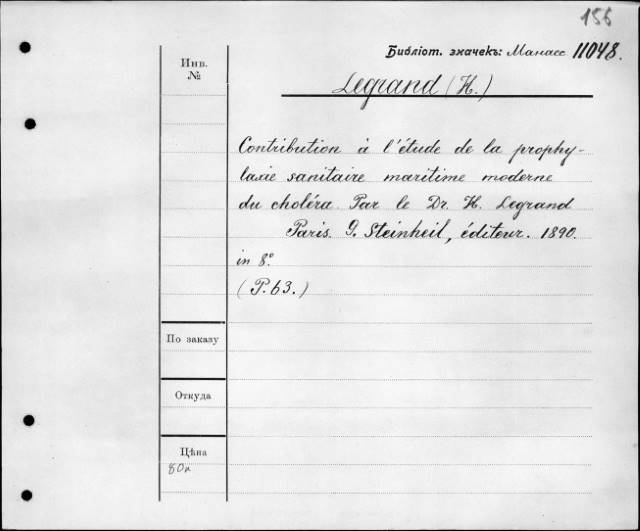 156
Библіот. значекъ: Манасс 11048.
Инв.
№
Legrand (H.)
Contribution à l'étude de la prophy-
laxie sanitaire maritime moderne
du choléra. Par le Dr. H. Legrand
Paris. G. Steinheil, éditeur. 1890.
in 8°.
(P. 63.)
По заказу
Откуда
Цѣна
80к